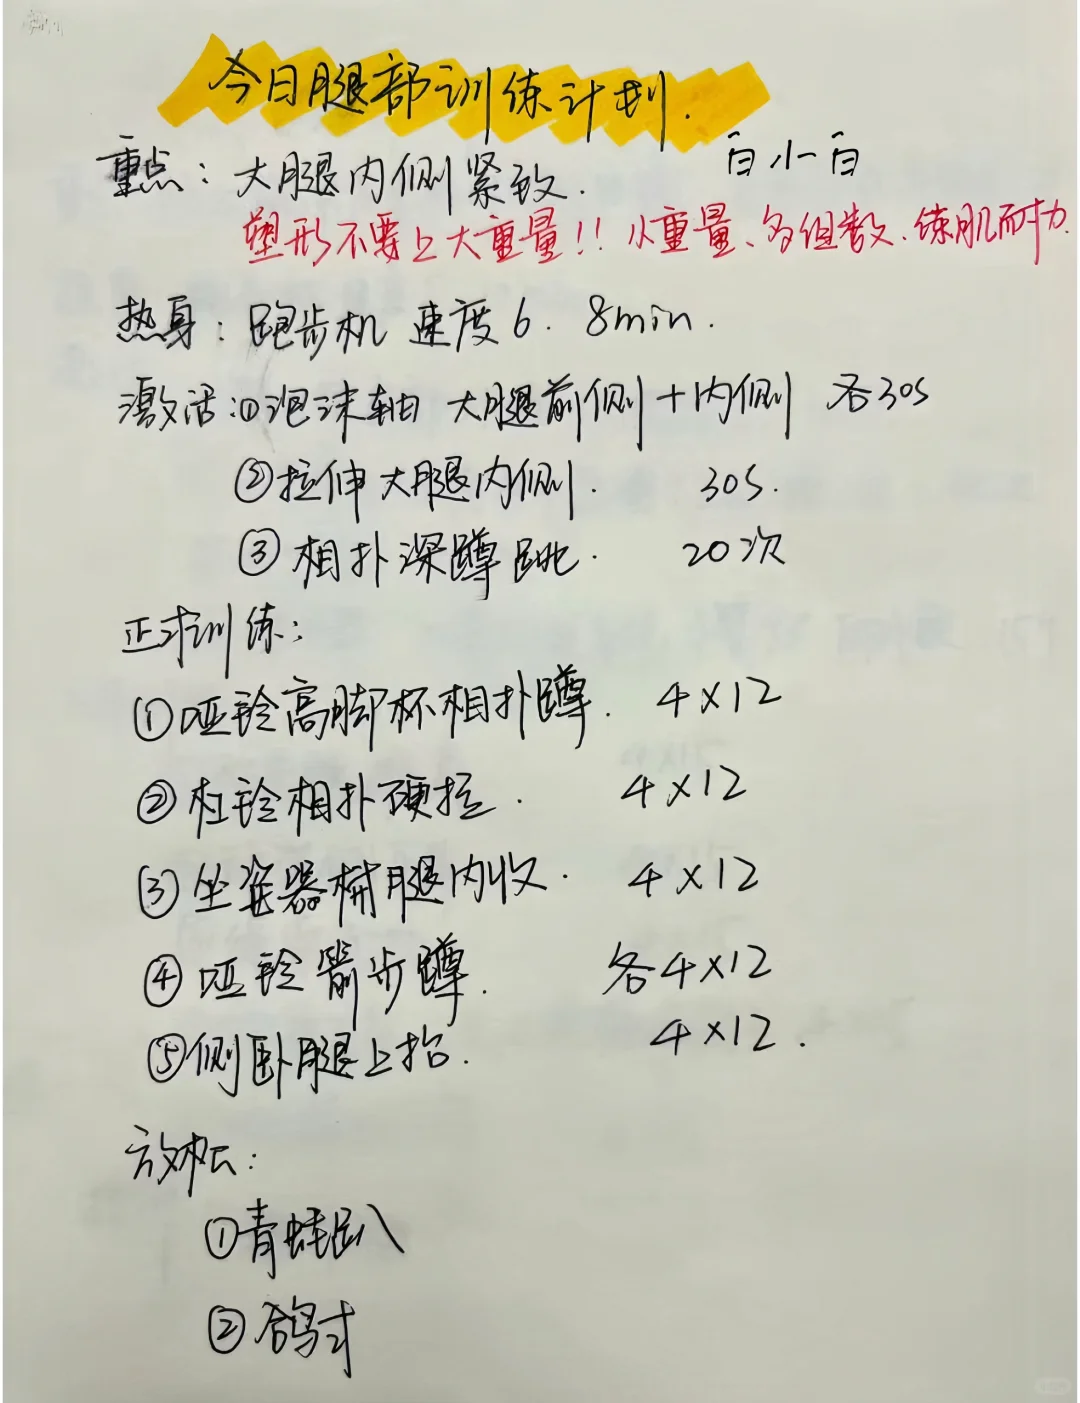 今日腿部训练计划.
白小白
重点: 大腿内侧紧致.
塑形不要上大重量!! 小重量、多组数、练肌耐力.
热身: 跑步机 速度6. 8min.
激活:①泡沫轴 大腿前侧+内侧 各30s
②拉伸大腿内侧. 30s.
③相扑深蹲跳. 20次
正式训练:
①哑铃高脚杯相扑蹲. 4×12
②杠铃相扑硬拉. 4×12
③坐姿器械腿内收. 4×12
④哑铃箭步蹲. 各4×12
⑤侧卧腿上抬. 4×12.
放松:
①青蛙趴
②鸽式